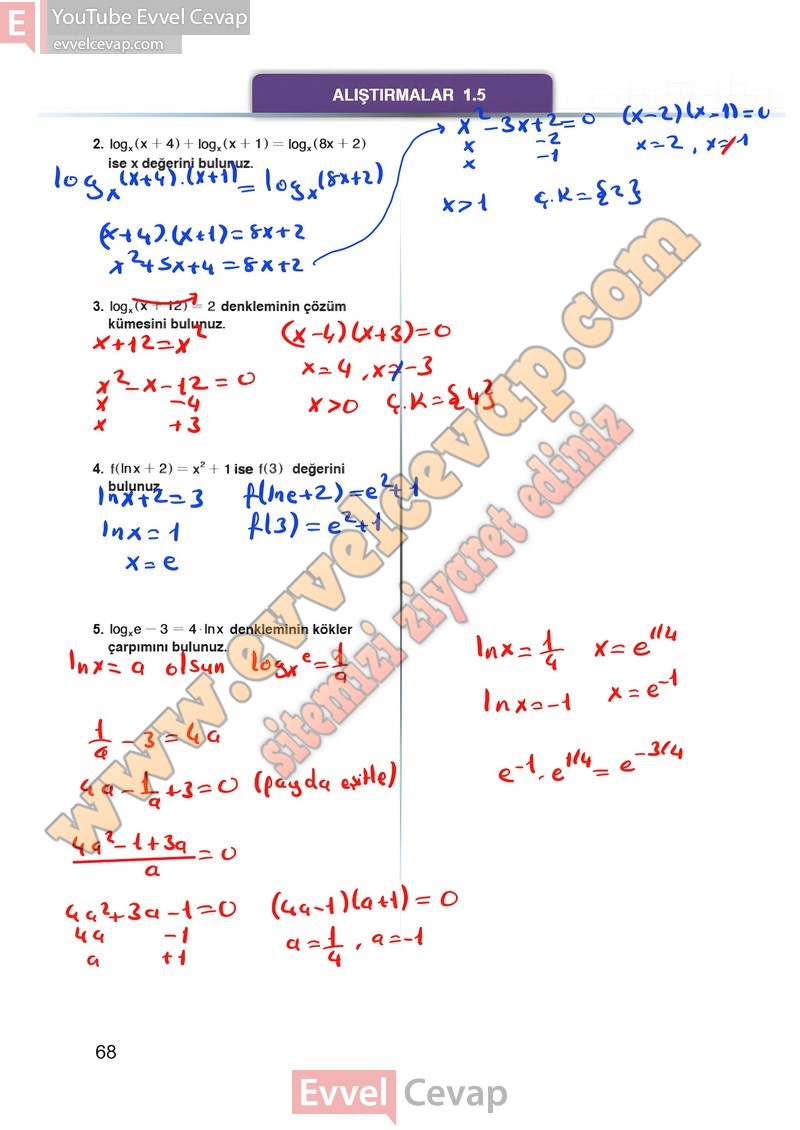 YouTube Evvel Cevap
evvelcevap.com
ALIŞTIRMALAR 1.5
2. logₓ(x + 4) + logₓ(x + 1) = logₓ(8x + 2)
ise x değerini bulunuz.
logₓ(x+4).(x+1) = logₓ(8x+2)
(x+4).(x+1) = 8x+2
x²+5x+4 = 8x+2
x² - 3x + 2 = 0 (x-2)(x-1)=0
x -2 x=2, x=1
x -1
x>1 Ç.K={2}
3. logₓ(x + 12) = 2 denkleminin çözüm
kümesini bulunuz.
x+12=x² (x-4)(x+3)=0
x²-x-12=0 x=4, x=-3
x -4 x>0 Ç.K={4}
x +3
4. f(lnx + 2) = x² + 1 ise f(3) değerini
bulunuz.
lnx+2=3 f(lne+2)=e²+1
lnx=1 f(3)=e²+1
x=e
5. logₓe − 3 = 4·lnx denkleminin kökler
çarpımını bulunuz.
lnx=a olsun logₓe=1/a
1/a - 3 = 4a
4a - 1/a + 3 = 0 (payda eşitle)
4a²-1+3a/a = 0
4a²+3a-1=0 (4a-1)(a+1)=0
4a -1 a=1/4, a=-1
a +1
lnx=1/4 x=e^1/4
lnx=-1 x=e^-1
e^-1 . e^1/4 = e^-3/4
www.evvelcevap.com
sitemizi ziyaret ediniz
68
Evvel Cevap